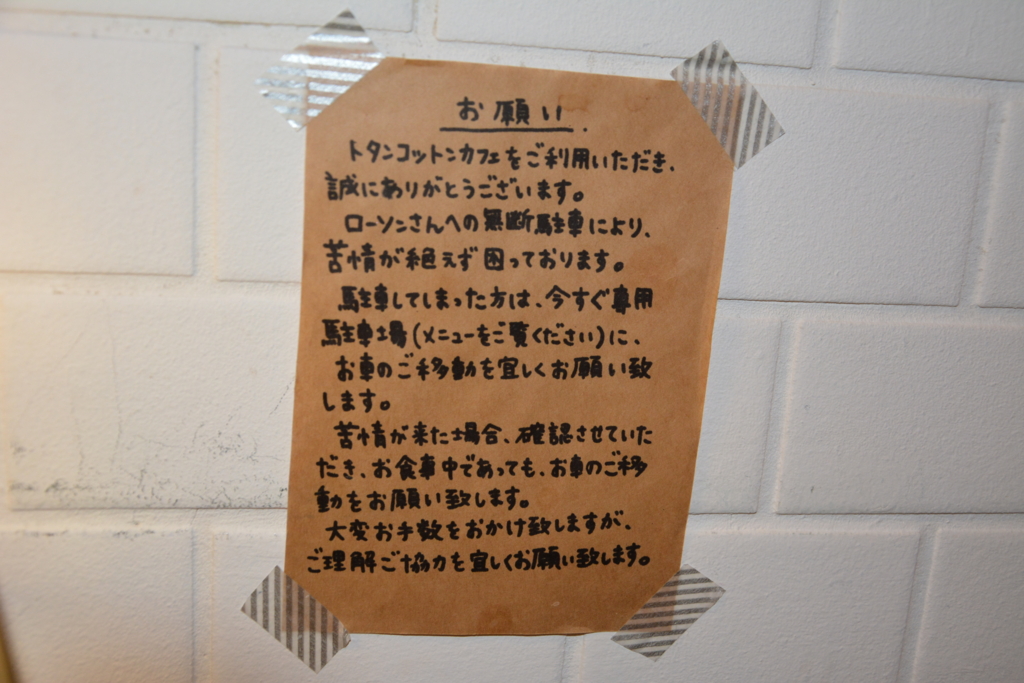 お願い
トタンコットンカフェをご利用いただき、
誠にありがとうございます。
ローソンさんへの無断駐車により、
苦情が絶えず困っております。
駐車してしまった方は、今すぐ専用
駐車場(メニューをご覧ください)に、
お車のご移動を宜しくお願い致
します。
苦情が来た場合、確認させていた
だき、お食事中であっても、お車のご移
動をお願い致します。
大変お手数をおかけ致しますが、
ご理解ご協力を宜しくお願い致します。